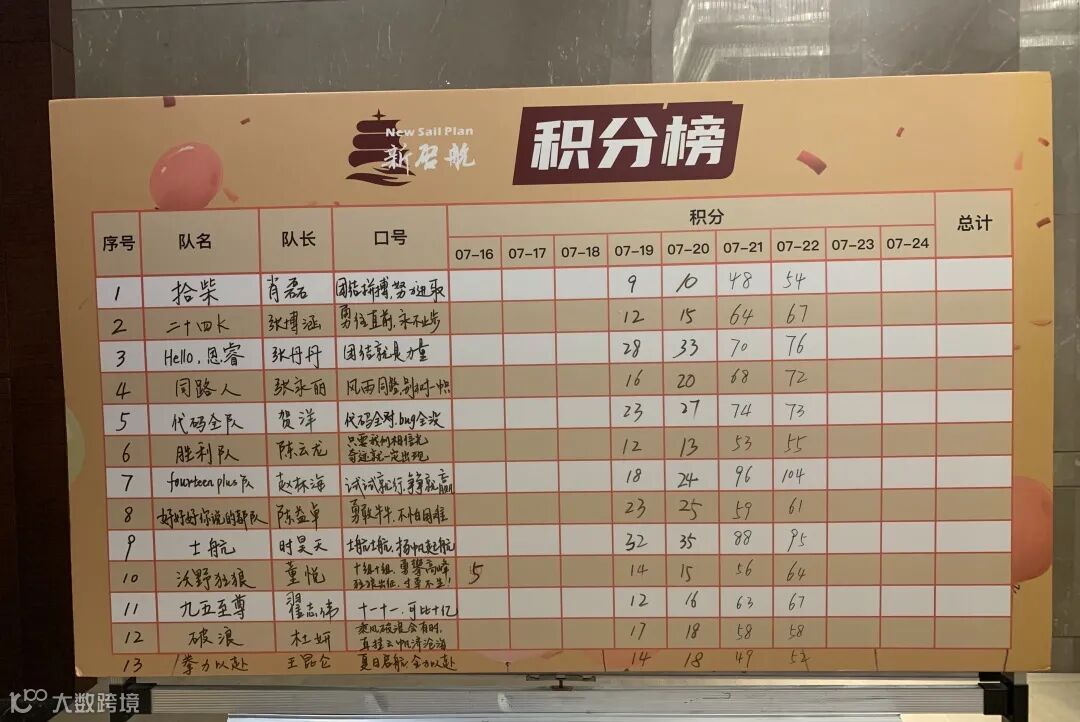 New Sail Plan
新启航
积分榜
序号 队名 队长 口号 积分 总计
07-16 07-17 07-18 07-19 07-20 07-21 07-22 07-23 07-24
1 拾柴 肖磊 团结拼搏,努力进取 9 10 48 54
2 二十四k 张博涵 勇往直前,永不止步 12 15 64 67
3 Hello,恩睿 张丹丹 团结就是力量 28 33 70 76
4 同路人 张永丽 风雨同路, 16 20 68 72
5 代码全队 贺洋 代码全对,bug全没 23 27 74 73
6 胜利队 陈云龙 只要我们相信光 12 13 53 55
奇迹就一定出现
7 fourteen plus队 赵林海 试试就行,争争就赢 18 24 96 104
8 好好好你说的都队 陈益卓 勇敢牛牛,不怕困难 23 25 59 61
9 士航 时昊天 士航士航,扬帆起航 32 35 88 95
10 沃野狂狼 董悦 十组十组,勇攀高峰 5 14 15 56 64
狂狼出征,寸草不生!
11 九五至尊 翟志伟 十一十一,可比十亿 12 16 63 67
12 破浪 杜妍 乘风破浪会有时, 17 18 58 58
直挂云帆济沧海
13 拳力以赴 王昆仑 夏日启航,全力以赴 14 18 49
大数跨境